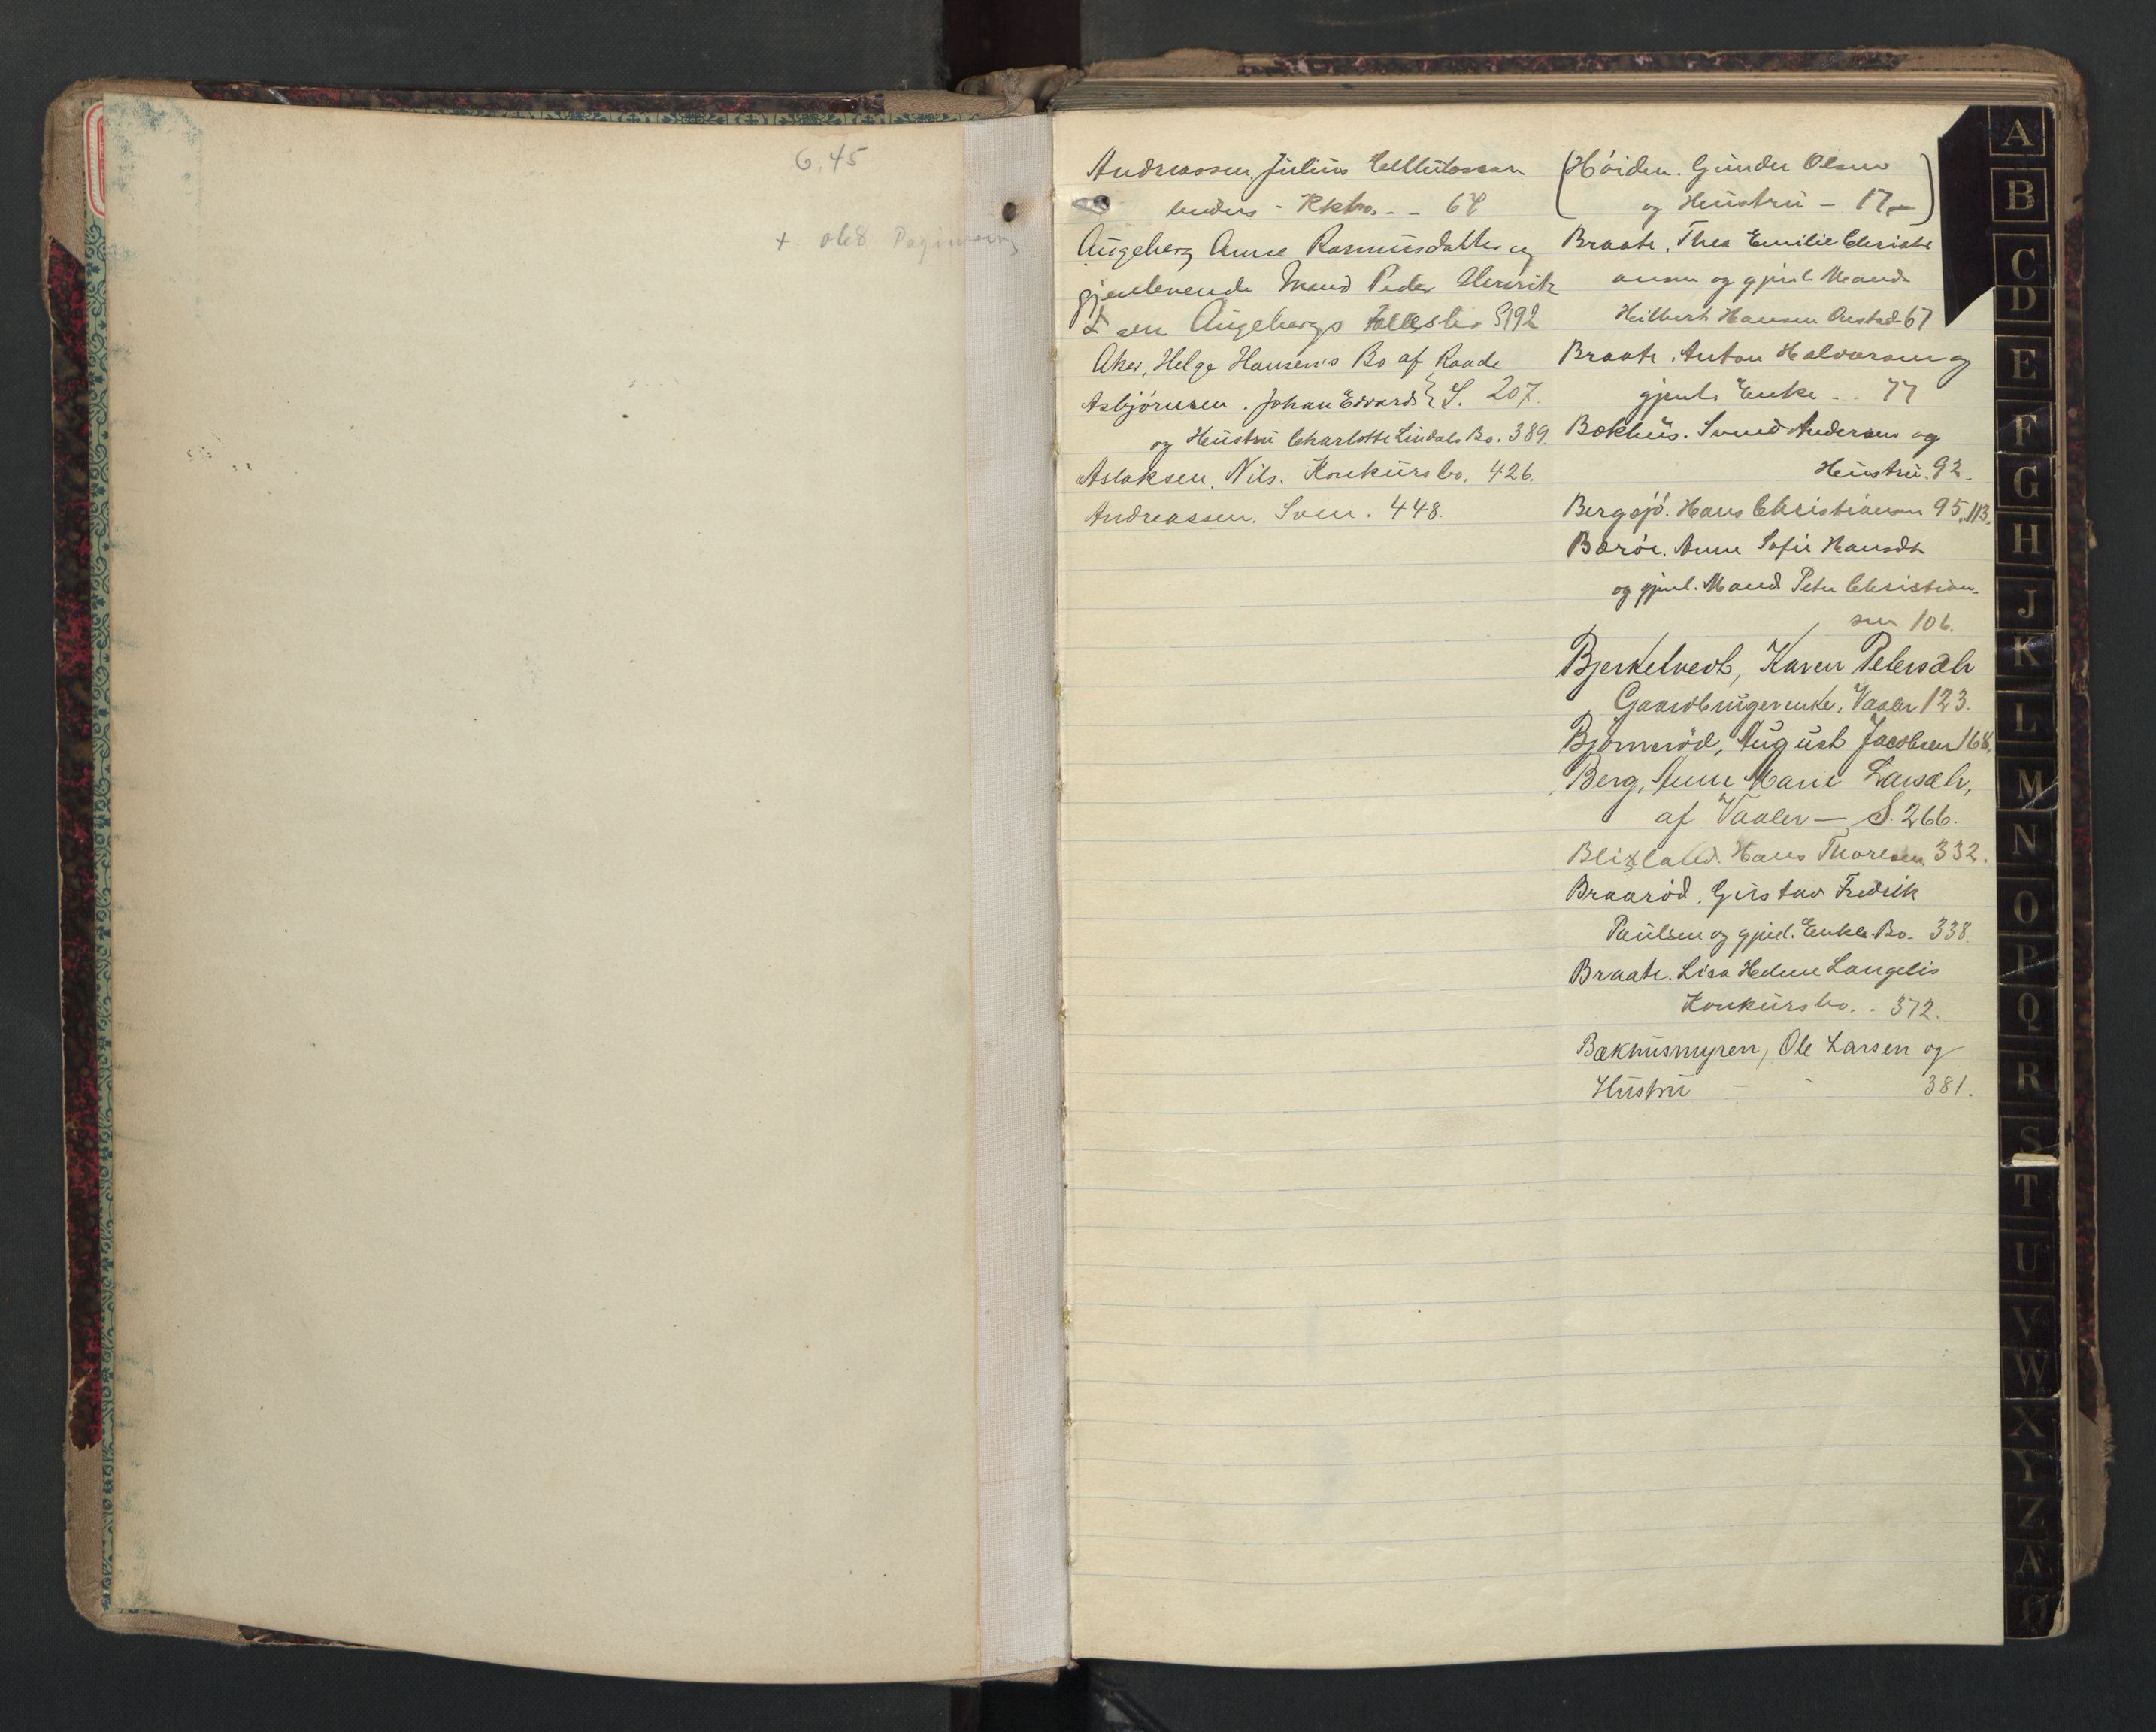 6.45
+ old Paginering
Andreassen. Julius
lenders - Kkbo. - - 64
Augeberg Anne Rasmusdatter og
gjenlevende Mand Peder Henrik
sen Augebergs S192
Aker, Helge Hansen's Bo af Raade
S. 207.
Asbjørnsen. Johan Edvard
og Hustru Charlotte Lindals Bo. 389.
Aslaksen. Nils. Konkursbo. 426.
Andreassen. Sven. 448.
(Høiden. Gunder Olsen
og Hustru - 17)
Braate. Thea Emilie Christi
ansen og gjenl. Mand
Hilbert Hansen Onstad 67
Braate. Anton Halvorsen og
gjenl. Enke - . 77
Bækhus. Svend Andersens og
Hustru. 92.
Bergsjø. Hans Christiansen 95, 113.
Bærøe. Anne Sofie Hansdt.
og gjenl. Mand Peter Christian-
sen 106.
Bjerketvedt, Karen Petersdtr
Gaardbrugerenke, Vaaler 123.
Bjørnerød, August Jacobsen 168.
Berg, Anne Marie Larsdtr,
af Vaaler — S. 266.
Blixland. Hans Thoresen 332.
Braarød. Gustav Fredrik
Paulsen og gjenl. Enkes Bo. 338.
Braate. Lisa Helene Langelis
Konkursbo. . 372.
Bækhusmyren, Ole Larsen og
Hustru - - 381.
A
B
C
D
E
F
G
H
J
K
L
M
N
O
P
Q
R
S
T
U
V
W
X
Y
Z
Æ
Ø